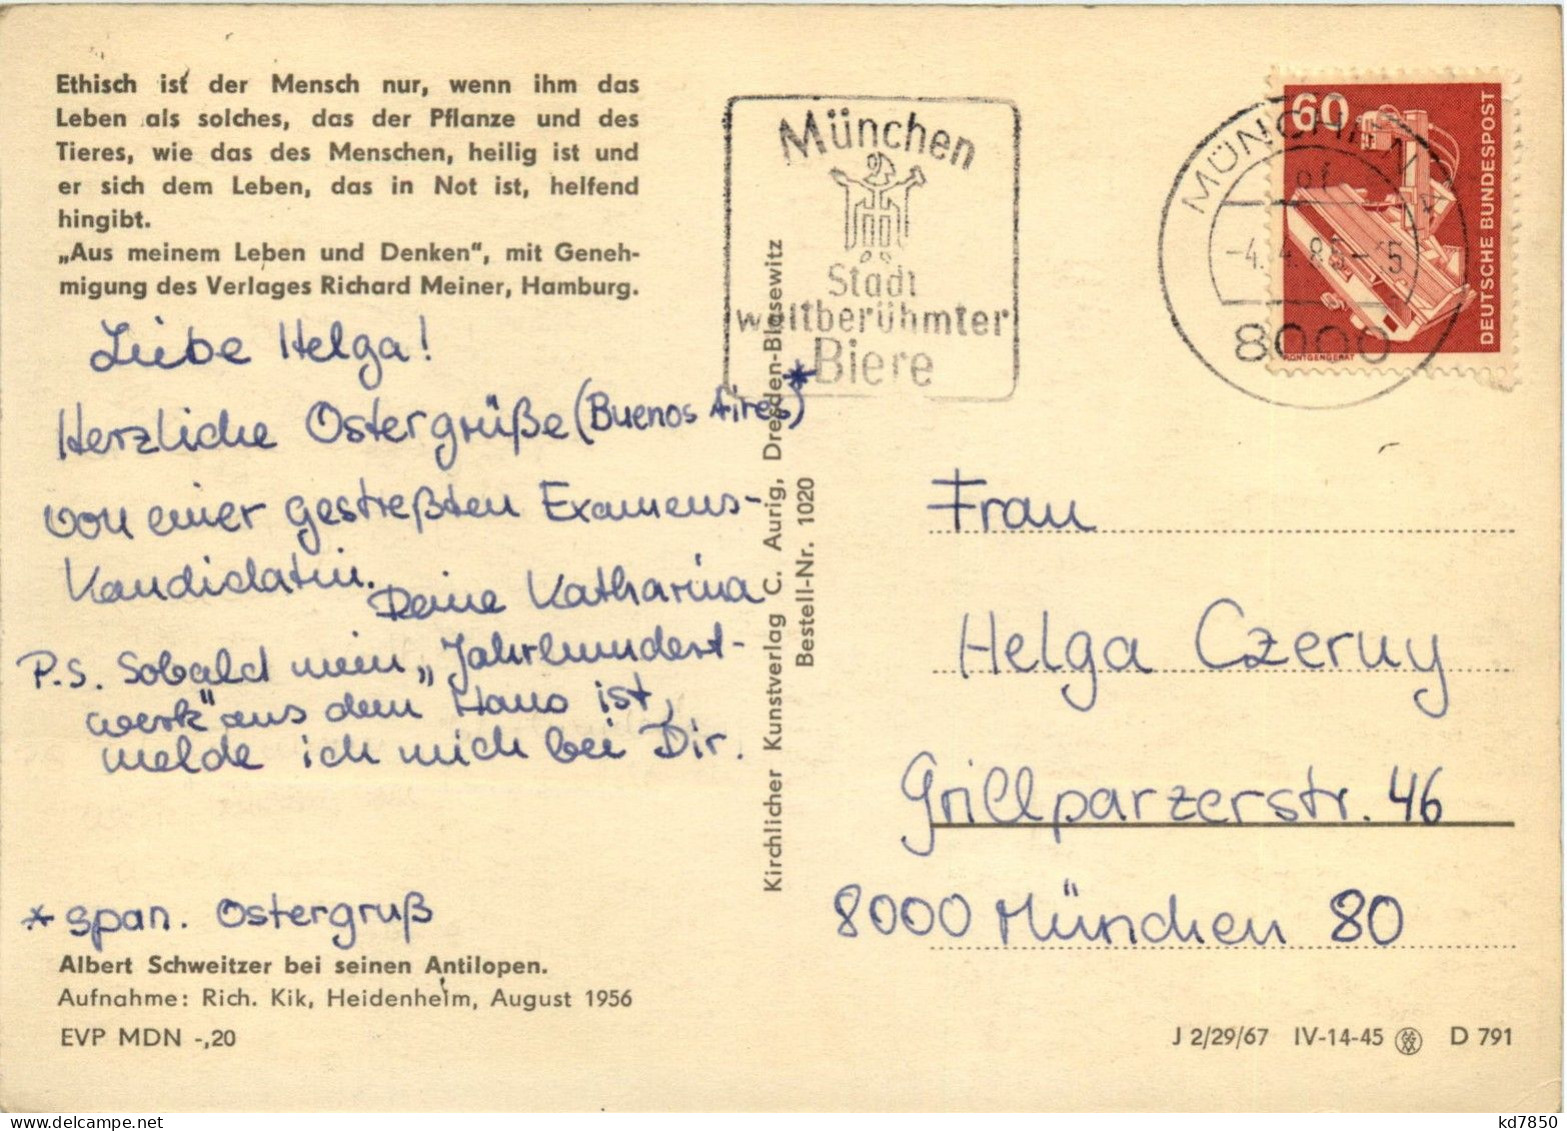 Ethisch ist der Mensch nur, wenn ihm das
Leben als solches, das der Pflanze und des
Tieres, wie das des Menschen, heilig ist und
er sich dem Leben, das in Not ist, helfend
hingibt.
„Aus meinem Leben und Denken“, mit Geneh-
migung des Verlages Richard Meiner, Hamburg.
Liebe Helga!
Herzliche Ostergrüße (Buenos Aires)*
von einer gestreßten Examens-
kandidatin.
Deine Katharina
P.S. Sobald mein „Jahrhundert-
werk“ aus dem Haus ist,
melde ich mich bei Dir.
* span. Ostergruß
Albert Schweitzer bei seinen Antilopen.
Aufnahme: Rich. Kik, Heidenheim, August 1956
EVP MDN -,20
Kirchlicher Kunstverlag C. Aurig, Dresden-Blasewitz
Bestell-Nr. 1020
München
Stadt
weltberühmter
Biere
MÜNCHEN
-4.4.85-15
8000
60
DEUTSCHE BUNDESPOST
RÖNTGENGERÄT
Frau
Helga Czerny
Grillparzerstr. 46
8000 München 80
J 2/29/67 IV-14-45 D 791
kd7850